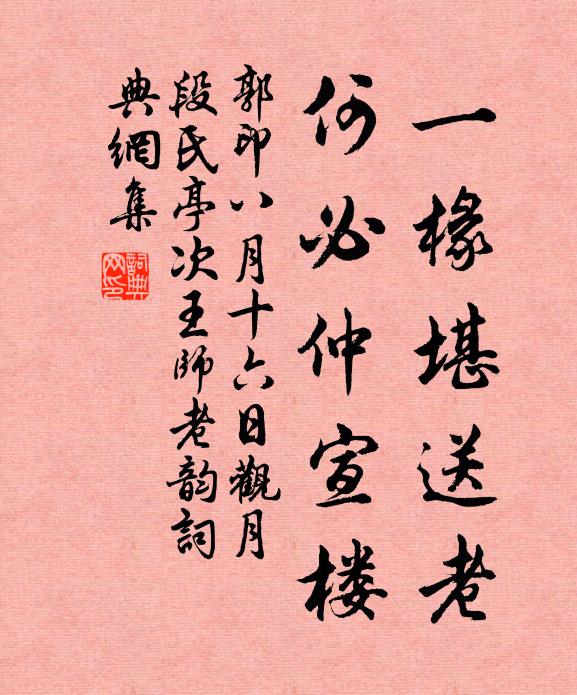 一椽堪送老
何必仲宣楼
郭印八月十六日觀月
段氏亭次王師老韵詞
典網集
詞典
网印